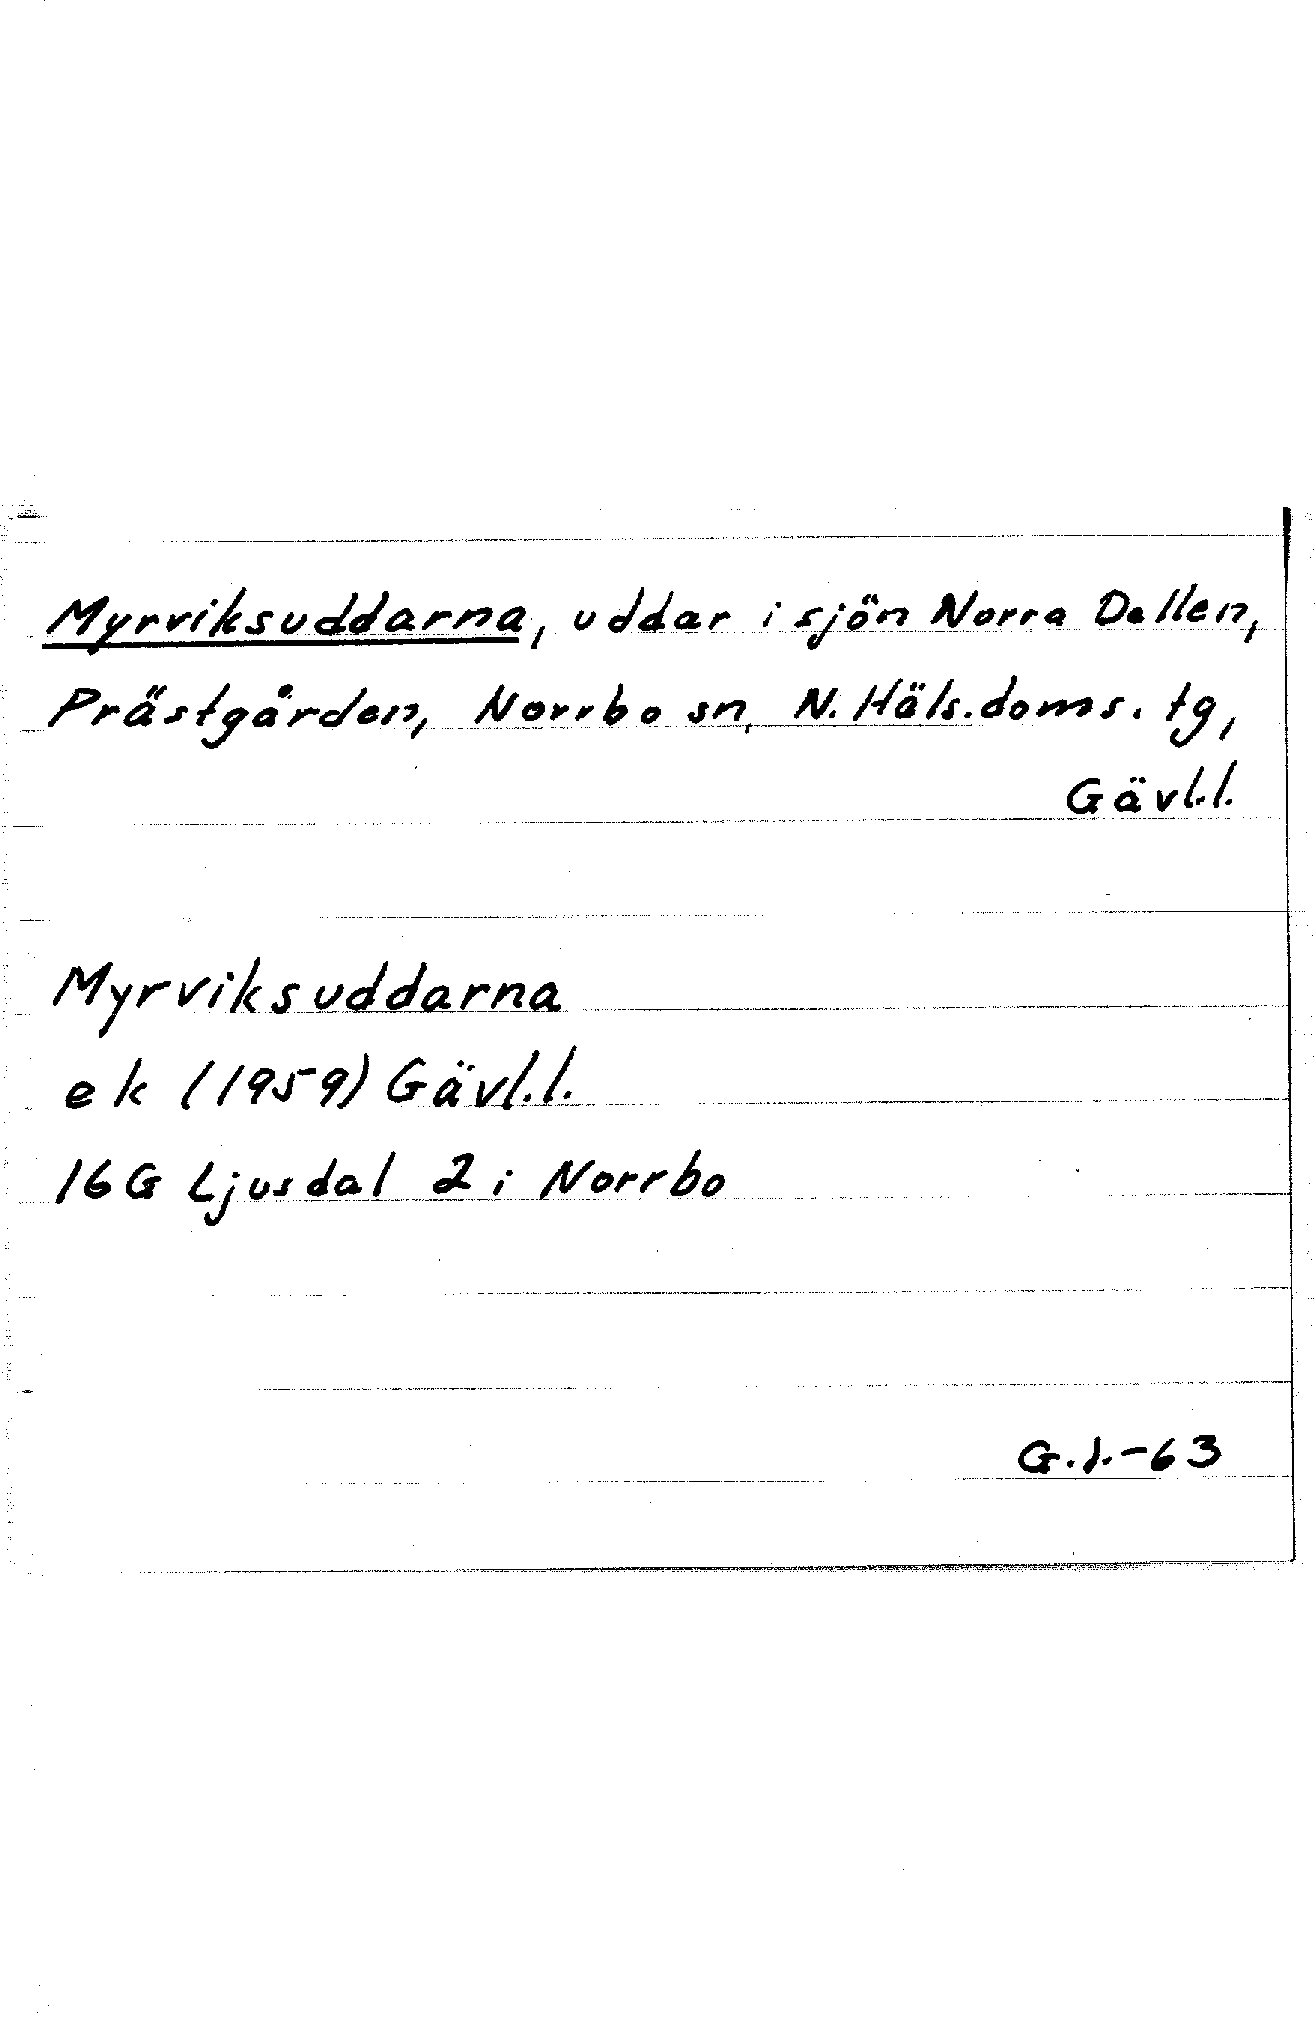 Myrviksuddarna, uddar i sjön Norra Dellen,
Prästgården, Norrbo sn, N. Häls.doms. tg,
Gävl.l.
Myrviksuddarna
ek (1959) Gävl.l.
16 G Ljusdal 2 i Norrbo
G.J.-63